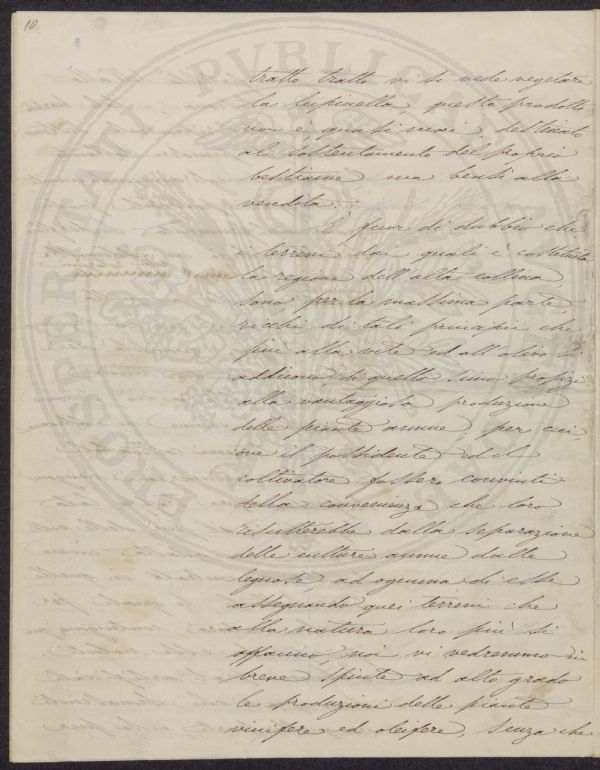 10.
tratto tratto vi si vede vegetare
la lupinella, questo prodotto
non è quasi mai, destinato
al sostentamento del proprio
bestiame, ma bensì alla
vendita.
È fuor di dubbio che
i terreni dai quali è costituita
la regione dell'alta collina
sono, per la massima parte,
ricchi di tali principii che
più alla vite ed all'olivo si
addicono, di quello sieno propizi
alla vantaggiosa produzione
delle piante annue, per cui,
ove il possidente ed il
coltivatore fossero convinti
della convenienza che loro
risulterebbe dalla separazione
delle culture annue dalle
legnose, ad ognuna di esse
assegnando quei terreni che
alla natura loro più si
affanno, noi vi vedremmo in
breve spinte ad alto grado
le produzioni delle piante
vinifere ed oleifere, senza che
PROSPERITATI PVBLICAE